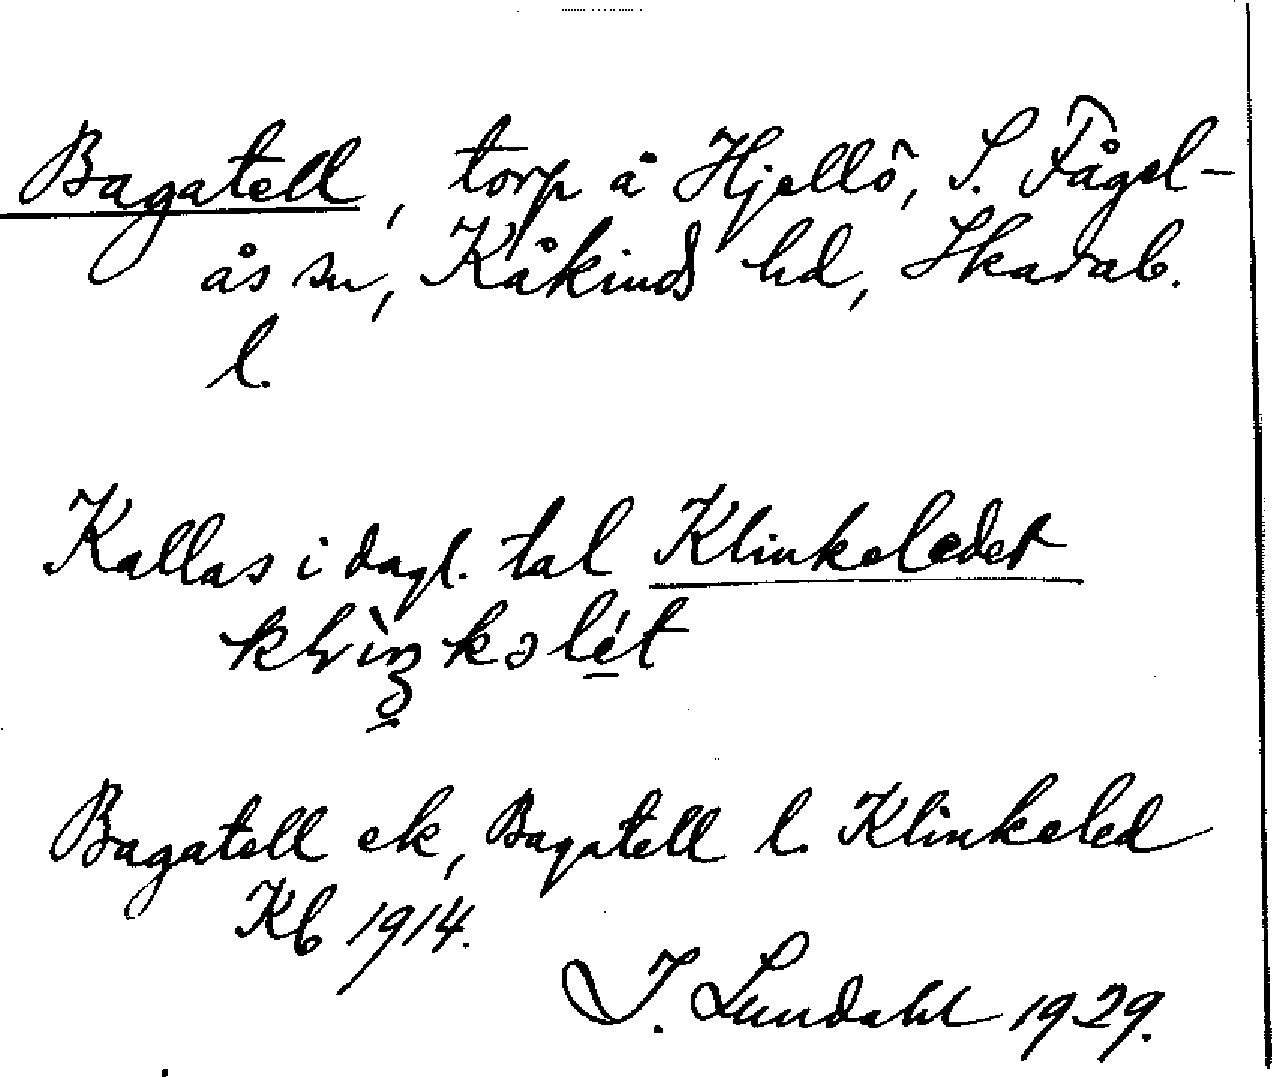 Bagatell, torp å Hjellö, S. Fågel-
ås sn, Kåkinds hd, Skarab.
l.
Kallas i dagl. tal Klinkeledet
Bagatell ek, Bagatell l. Klinkeled
Kb 1914.
I. Lundahl 1929.